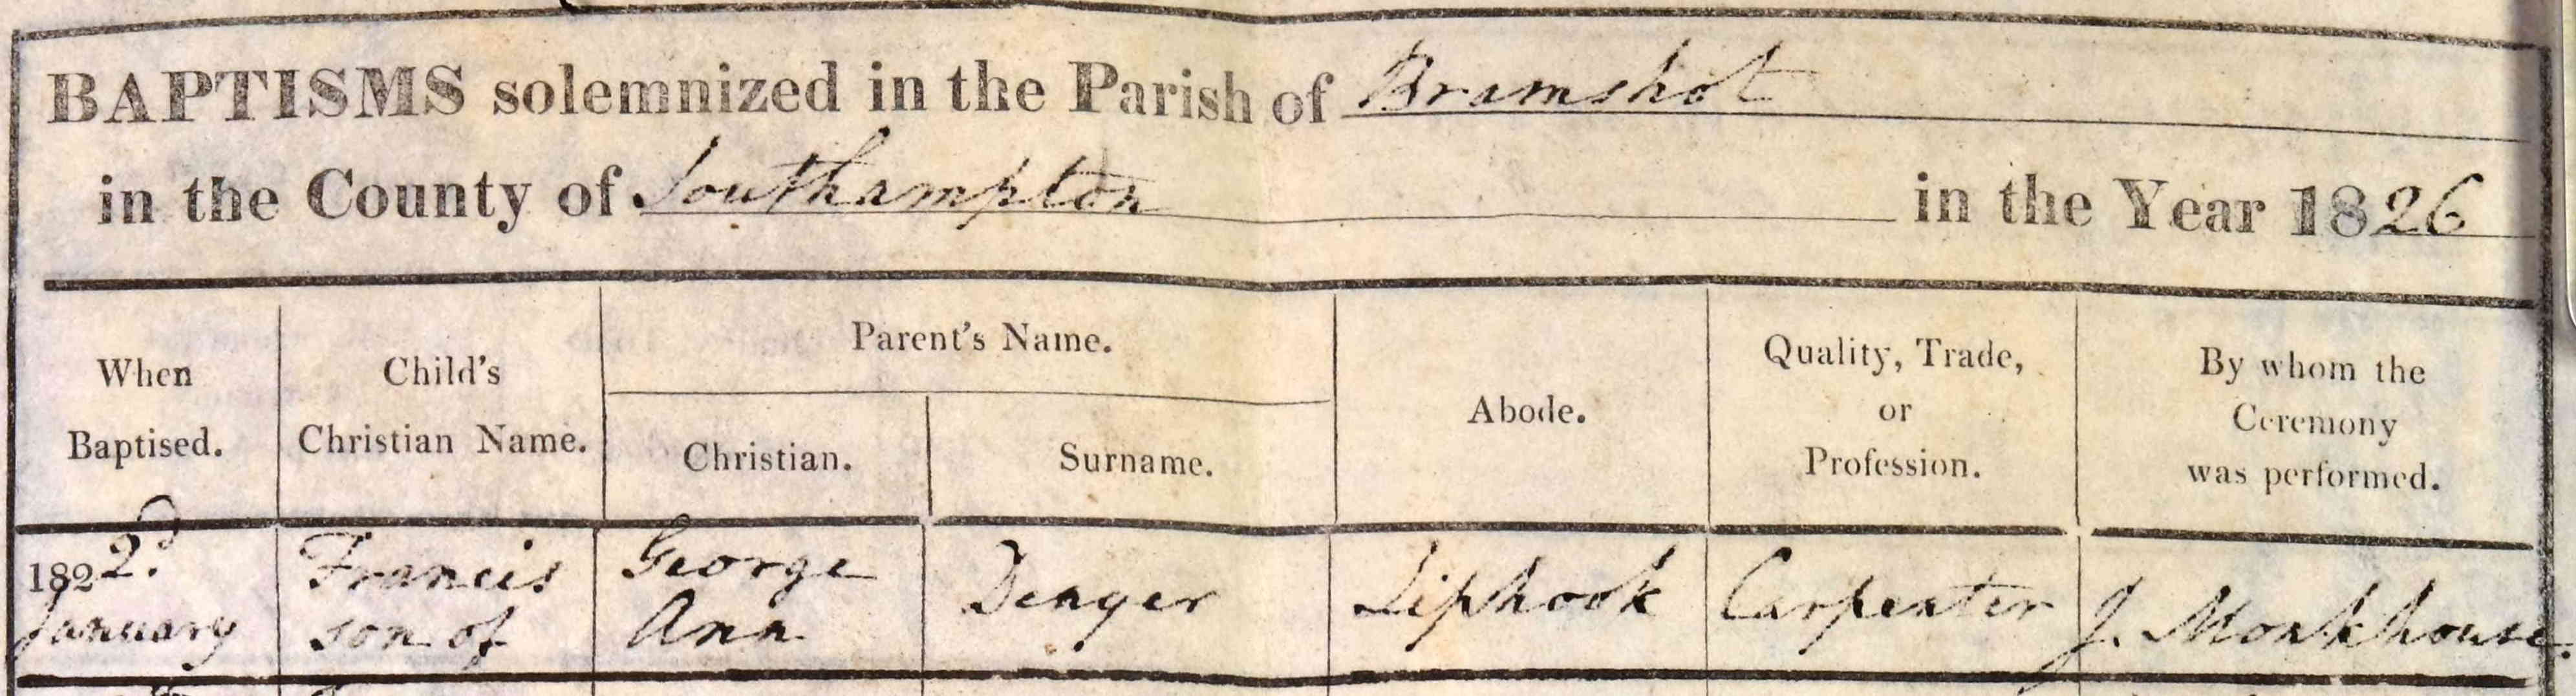 BAPTISMS solemnized in the Parish of Bramshot
in the County of Southampton in the Year 1826
When
Baptised.
Child's
Christian Name.
Parent's Name.
Christian.
Surname.
Abode.
Quality, Trade,
or
Profession.
By whom the
Ceremony
was performed.
182 2d
January
Francis
son of
George
Ann
Denyer
Liphook
Carpenter
J. Monkhouse.